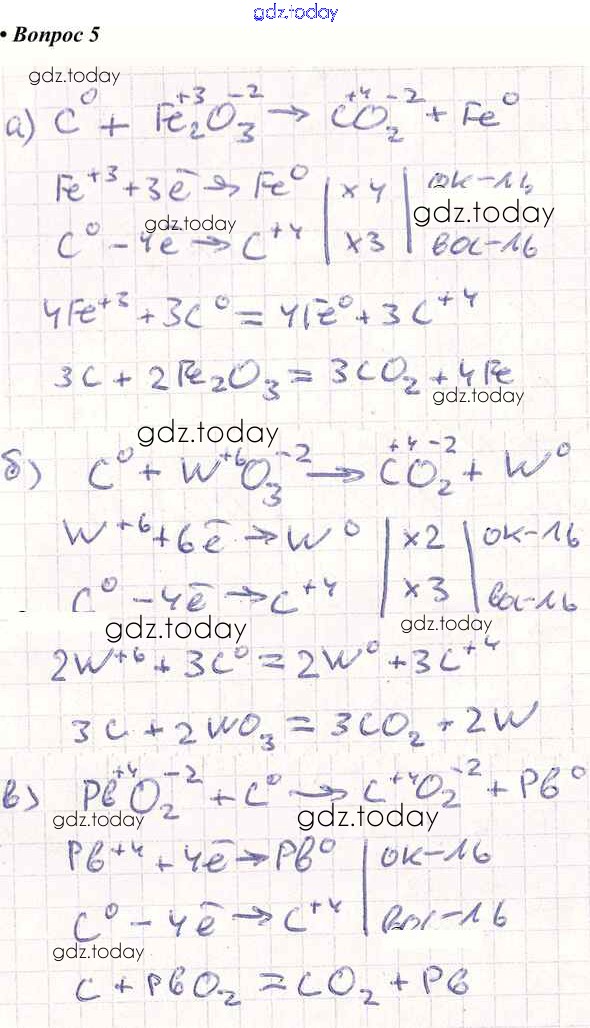 gdz.today
• Вопрос 5
gdz.today
а) C⁰ + Fe₂⁺³O₃⁻² → C⁺⁴O₂⁻² + Fe⁰
Fe⁺³ + 3ē → Fe⁰ | ×4 | ок-ль
gdz.today
gdz.today
C⁰ - 4ē → C⁺⁴ | ×3 | вос-ль
4Fe⁺³ + 3C⁰ = 4Fe⁰ + 3C⁺⁴
3C + 2Fe₂O₃ = 3CO₂ + 4Fe
gdz.today
gdz.today
б) C⁰ + W⁺⁶O₃⁻² → C⁺⁴O₂⁻² + W⁰
W⁺⁶ + 6ē → W⁰ | ×2 | ок-ль
C⁰ - 4ē → C⁺⁴ | ×3 | вос-ль
gdz.today
gdz.today
2W⁺⁶ + 3C⁰ = 2W⁰ + 3C⁺⁴
3C + 2WO₃ = 3CO₂ + 2W
в) Pb⁺⁴O₂⁻² + C⁰ → C⁺⁴O₂⁻² + Pb⁰
gdz.today
gdz.today
Pb⁺⁴ + 4ē → Pb⁰ | ок-ль
C⁰ - 4ē → C⁺⁴ | вос-ль
gdz.today
C + PbO₂ = CO₂ + Pb